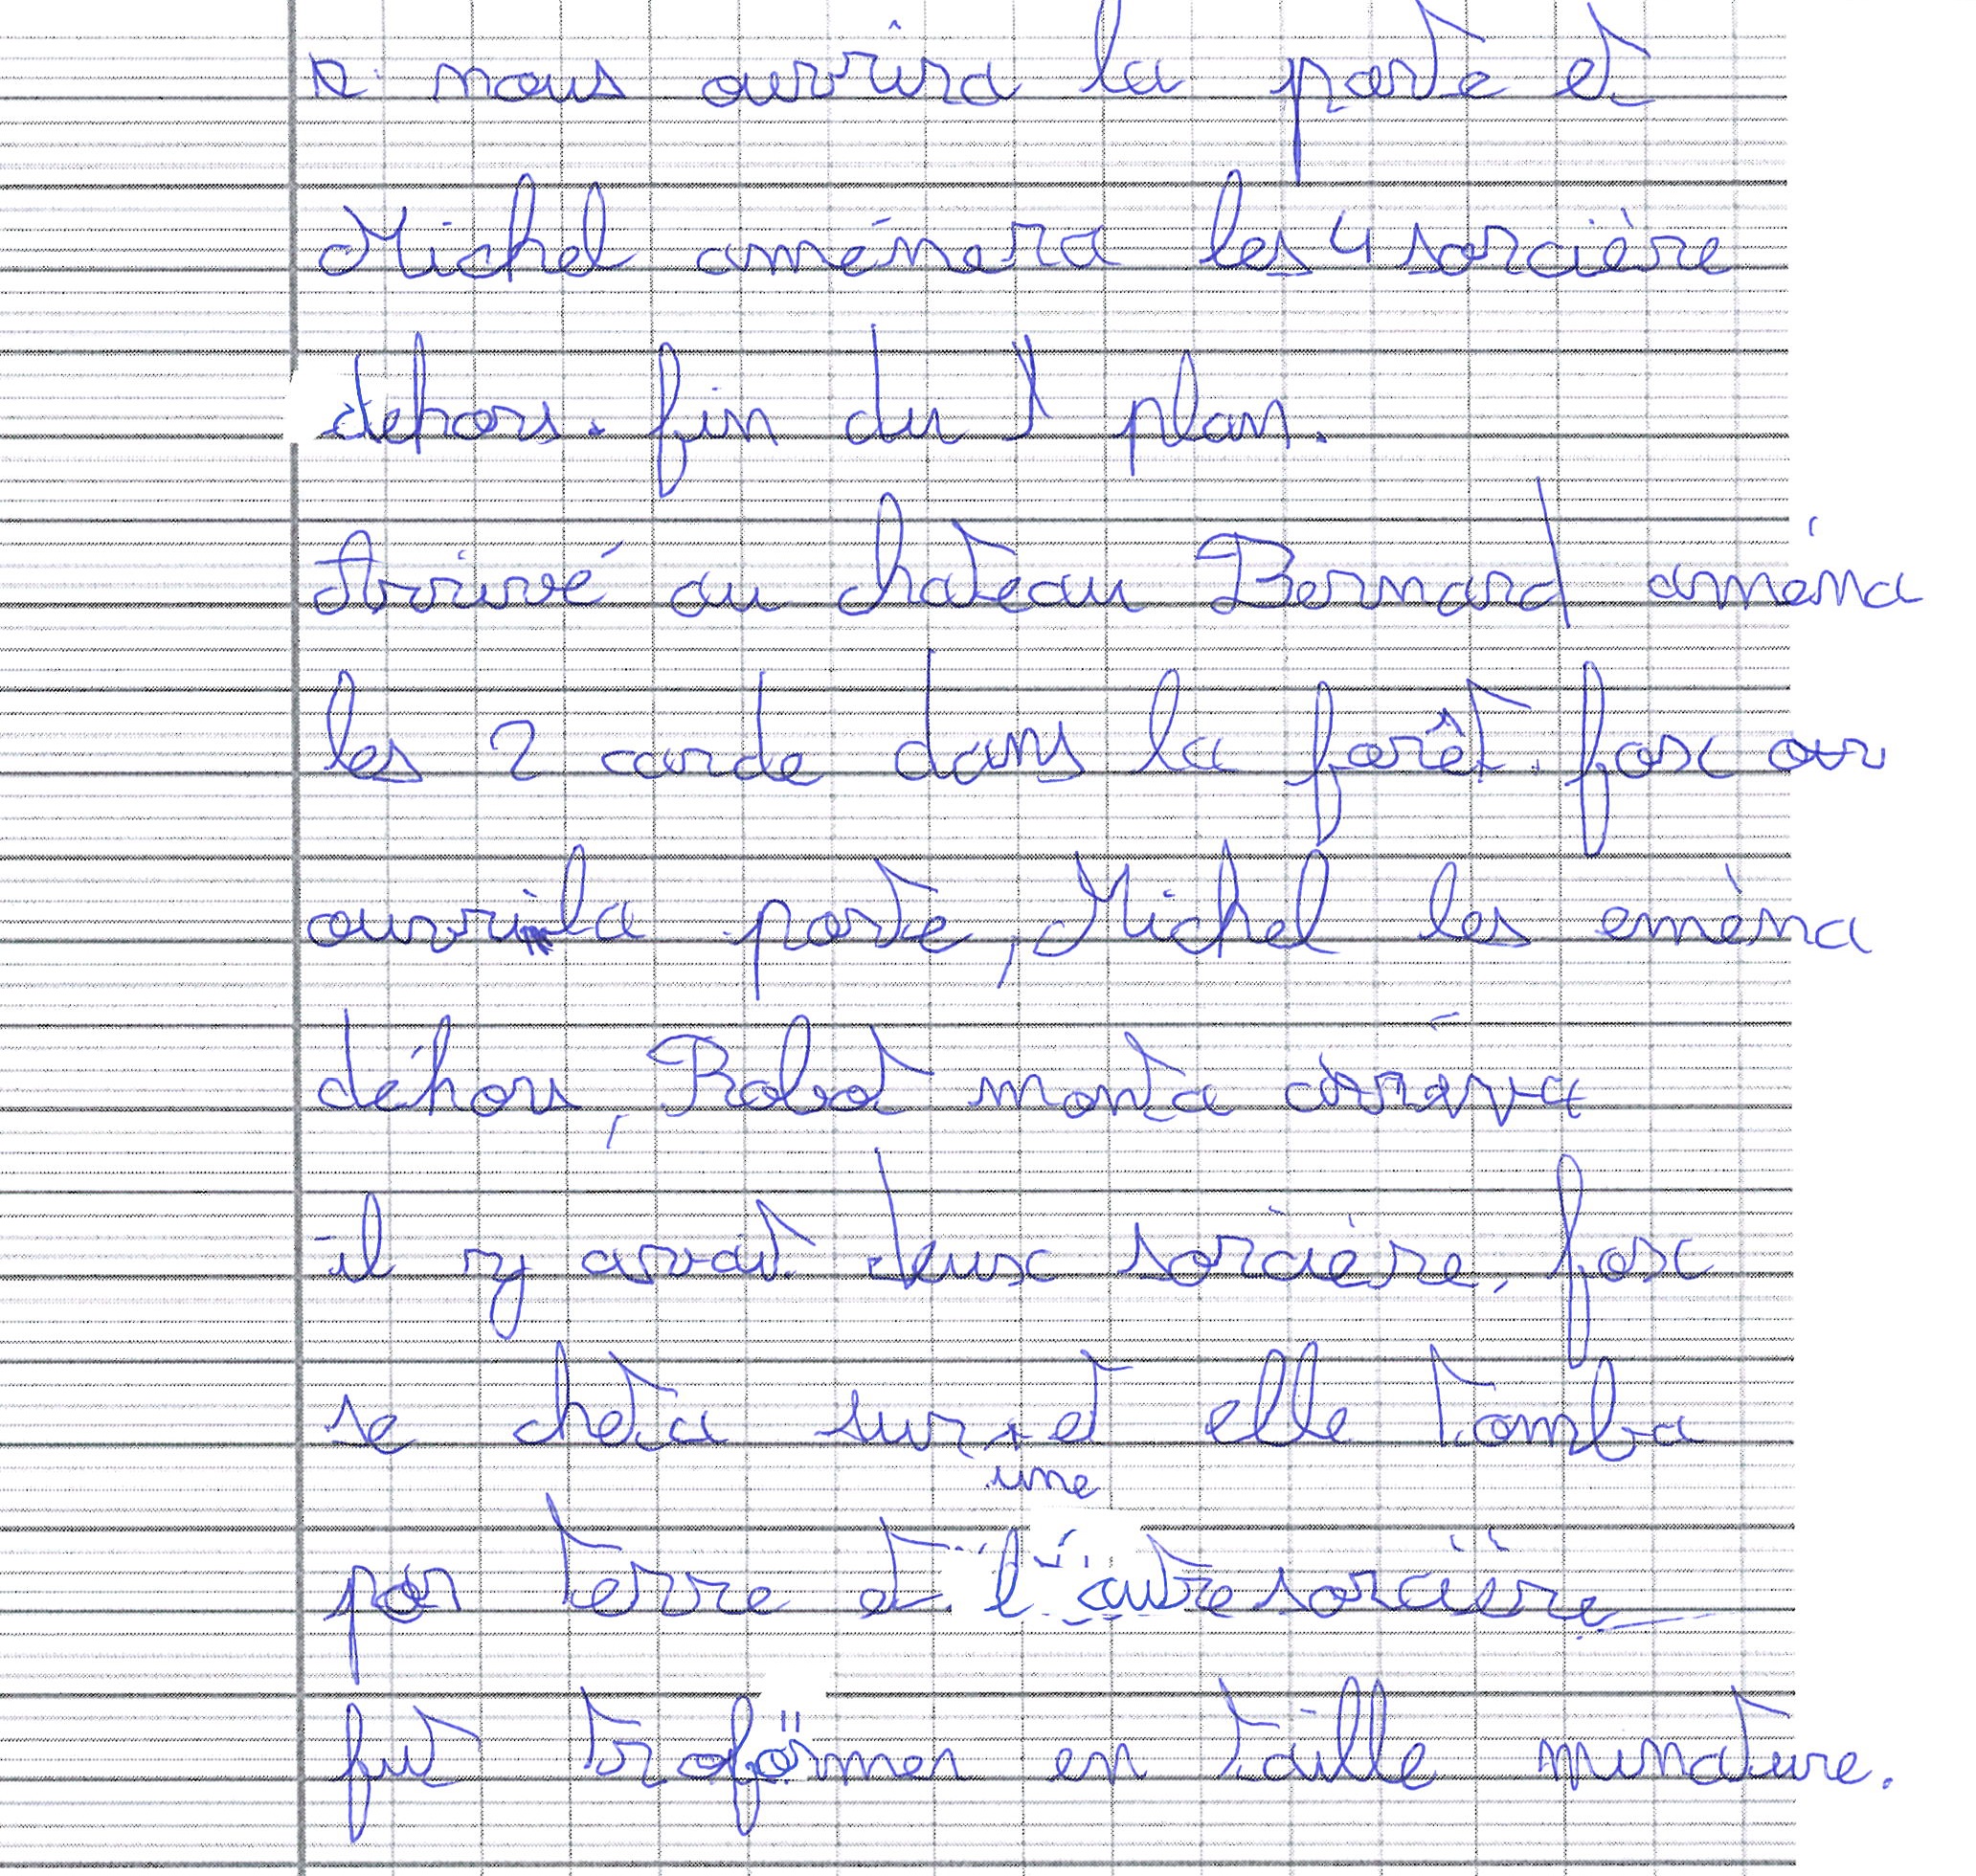 nous ouvrira la porte et
Michel amènera les 4 sorcière
dehors. fin du 1 plan.
Arrivé au chateau Bernard amèna
les 2 carde dans la forêt. fox ou
ouvri la porte, Michel les emèna
déhors, Robot monta arrivé
il ny avait deux sorcière, fox
se cheta sur une et elle tomba
par terre et l'autre sorcière
fut traformer en taille minature.